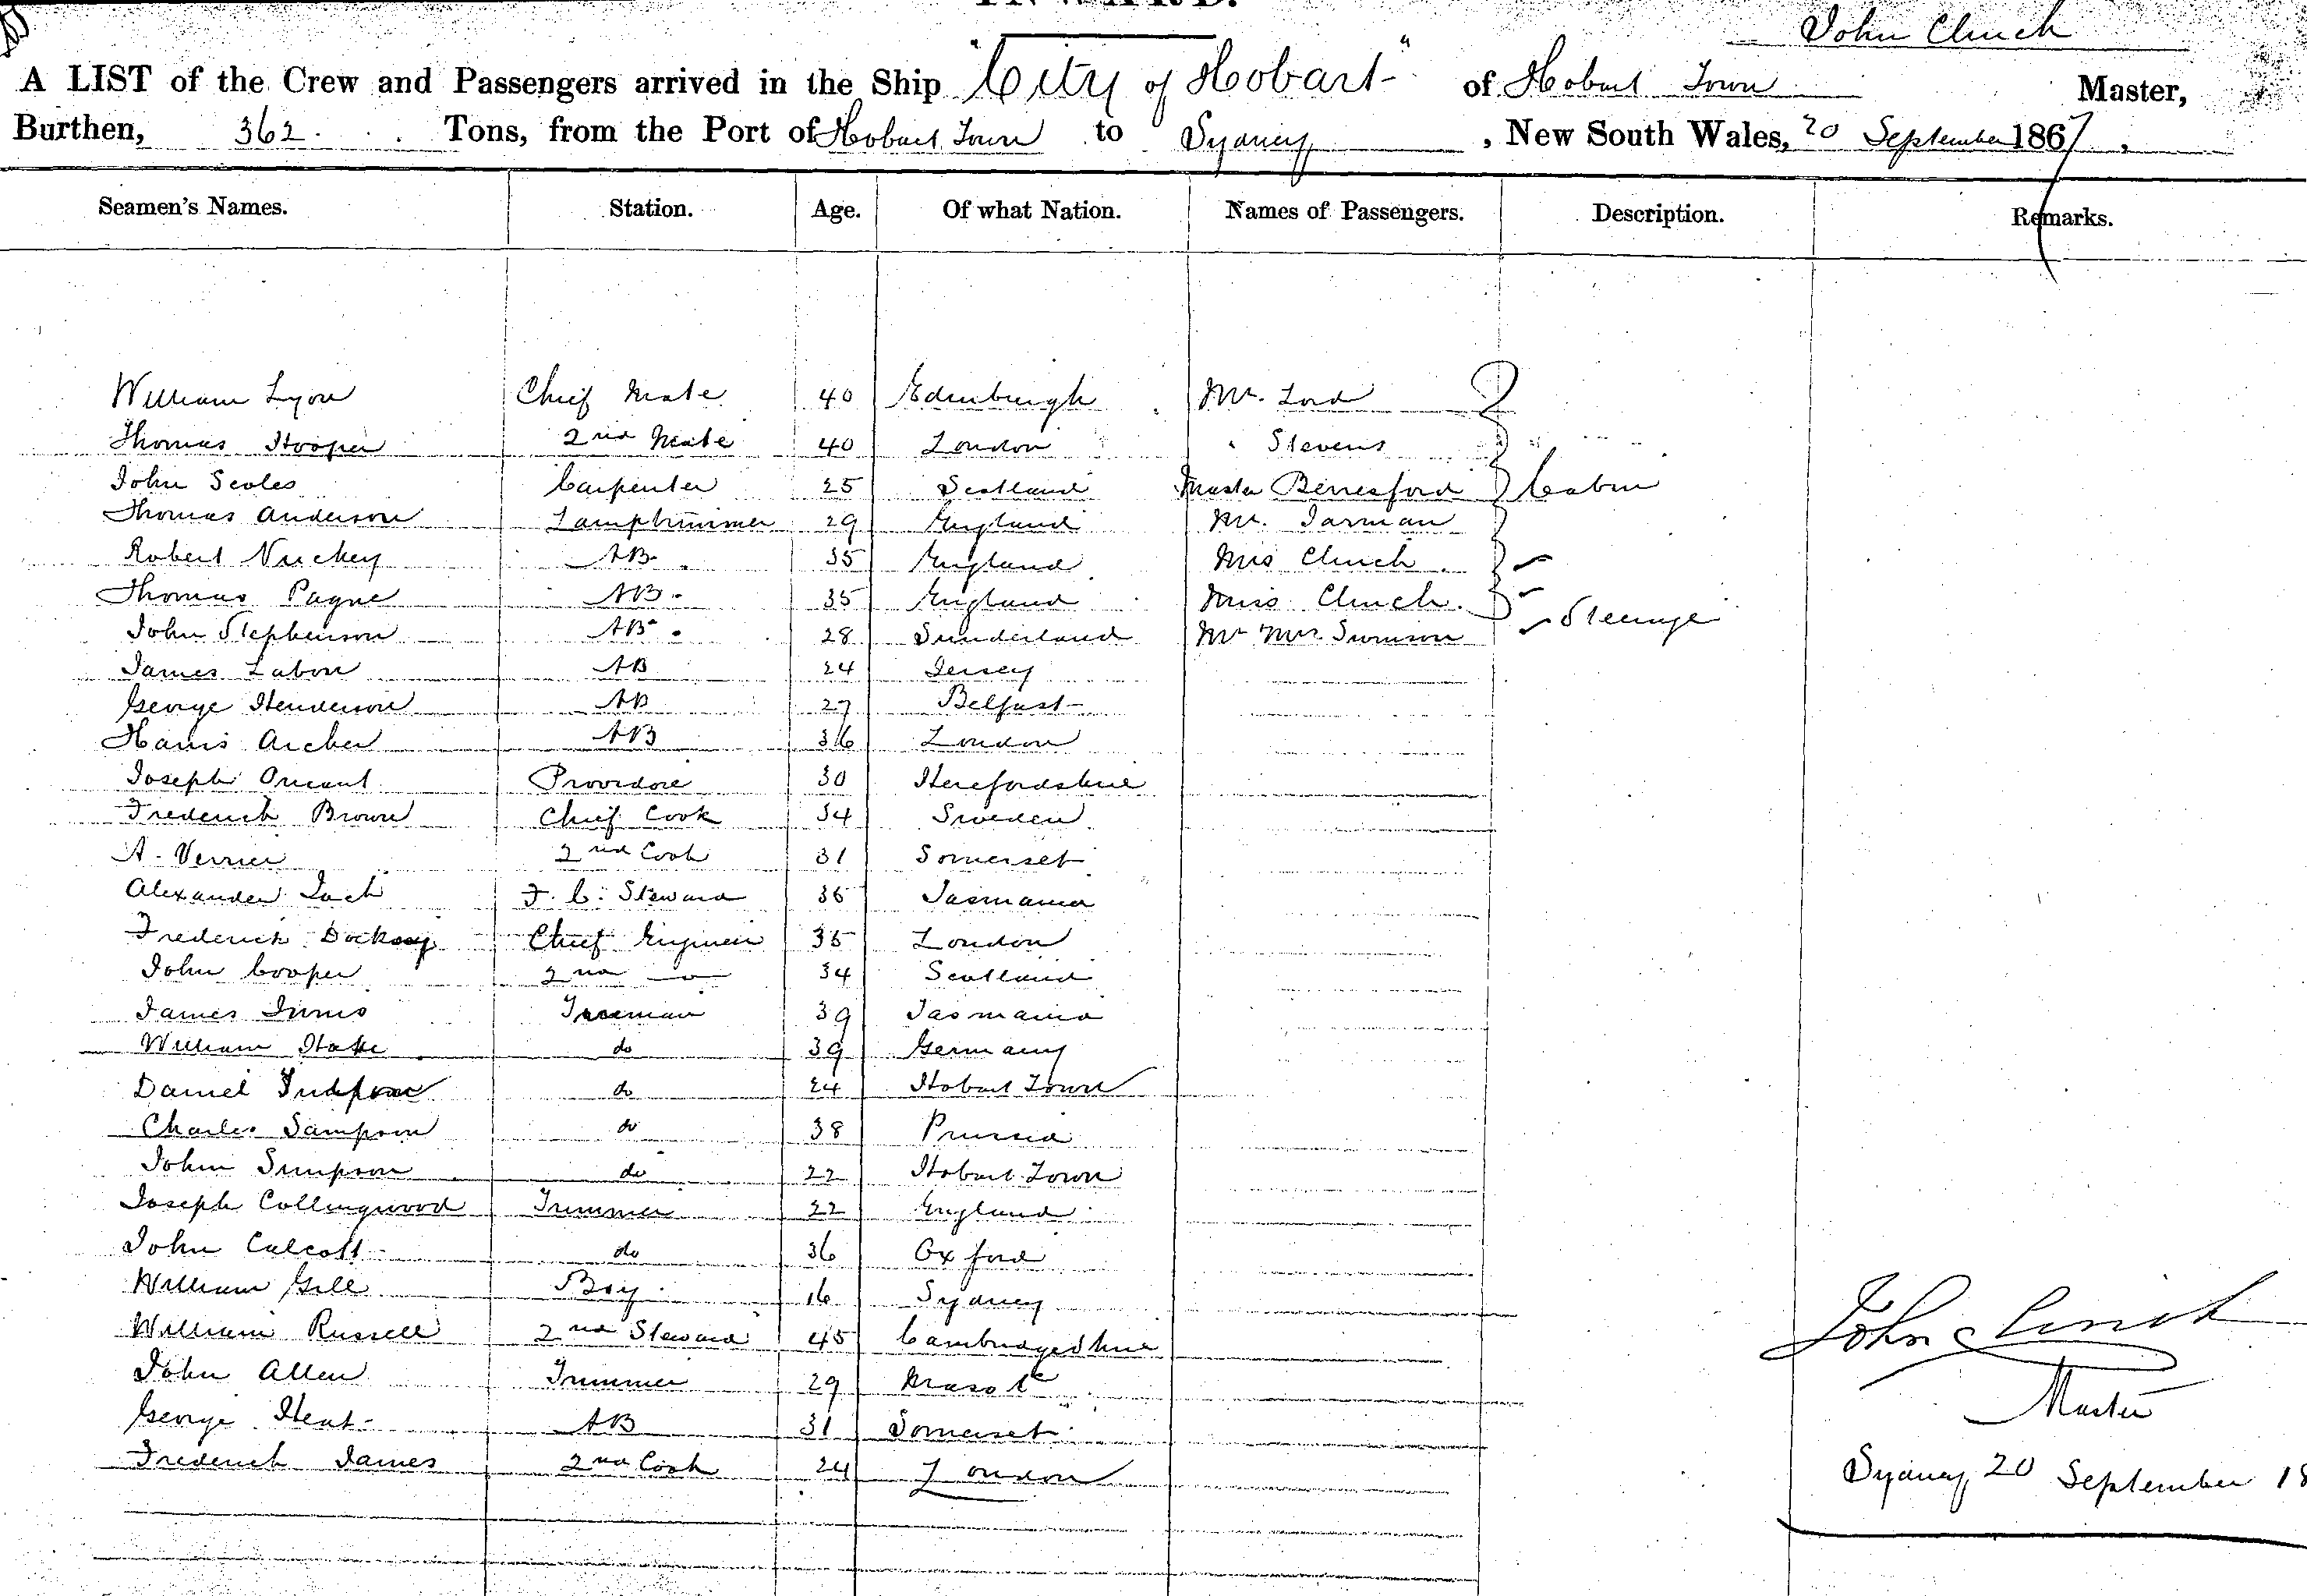 INWARD.
John Clinch
A LIST of the Crew and Passengers arrived in the Ship "City of Hobart" of Hobart Town Master,
Burthen, 362 Tons, from the Port of Hobart Town to Sydney, New South Wales, 20 September 1867,
Seamen's Names. Station. Age. Of what Nation. Names of Passengers. Description. Remarks.
William Lyon Chief Mate 40 Edinburgh Mr. Lord
Thomas Hooper 2nd Mate 40 London " Stevens
John Scoles Carpenter 25 Scotland Master Berresford Cabin
Thomas Anderson Lamptrimmer 29 England Mr. Jarman
Robert Nuckey AB 35 England Mrs Clinch
Thomas Payne AB 35 England Miss Clinch
John Stephenson AB 28 Sunderland Mr Mrs Swinson Steerage
James Labon AB 24 Jersey
George Henderson AB 27 Belfast
Harris Archer AB 36 London
Joseph Orient Providore 30 Herefordshire
Frederick Brown Chief Cook 34 Sweden
A. Verrier 2nd Cook 31 Somerset
Alexander F. C. Steward 35 Tasmania
Frederick Docksey Chief Engineer 35 London
John Cooper 2nd do 34 Scotland
James Innis Fireman 39 Tasmania
William do 39 Germany
Daniel do 24 Hobart Town
Charles Sampson do 38 Prussia
John Simpson do 22 Hobart Town
Joseph Collingwood Trimmer 22 England
John Calcott do 36 Oxford
William Gill Boy 16 Sydney
William Russell 2nd Steward 45 Cambridgeshire
John Allen Trimmer 29
George Heat AB 31 Somerset
Frederick James 2nd Cook 24 London
John Clinch
Master
Sydney 20 September 18